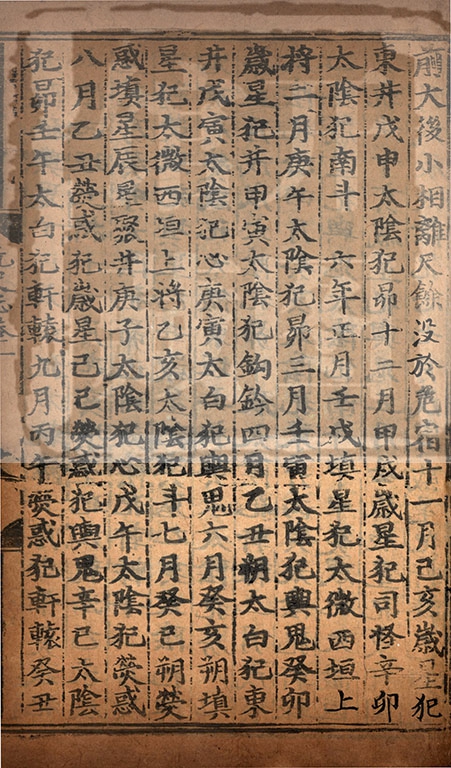 前大後小相離尺餘没於危宿十一月己亥歲星犯
東井戊申太陰犯昴十二月甲戌歲星犯司怪辛卯
太陰犯南斗　六年正月壬戌填星犯太微西垣上
将二月庚午太陰犯昴三月壬寅太陰犯輿鬼癸卯
歲星犯井甲寅太陰犯鈎鈐四月乙丑朔太白犯東
井戊寅太陰犯心庚寅太白犯輿鬼六月癸亥朔填
星犯太微西垣上将乙亥太陰犯斗七月癸巳朔熒
惑填星辰星聚井庚子太陰犯心戊午太陰犯熒惑
八月乙丑熒惑犯歲星己巳熒惑犯輿鬼辛巳太陰
犯昴壬午太白犯軒轅九月丙午熒惑犯軒轅癸丑